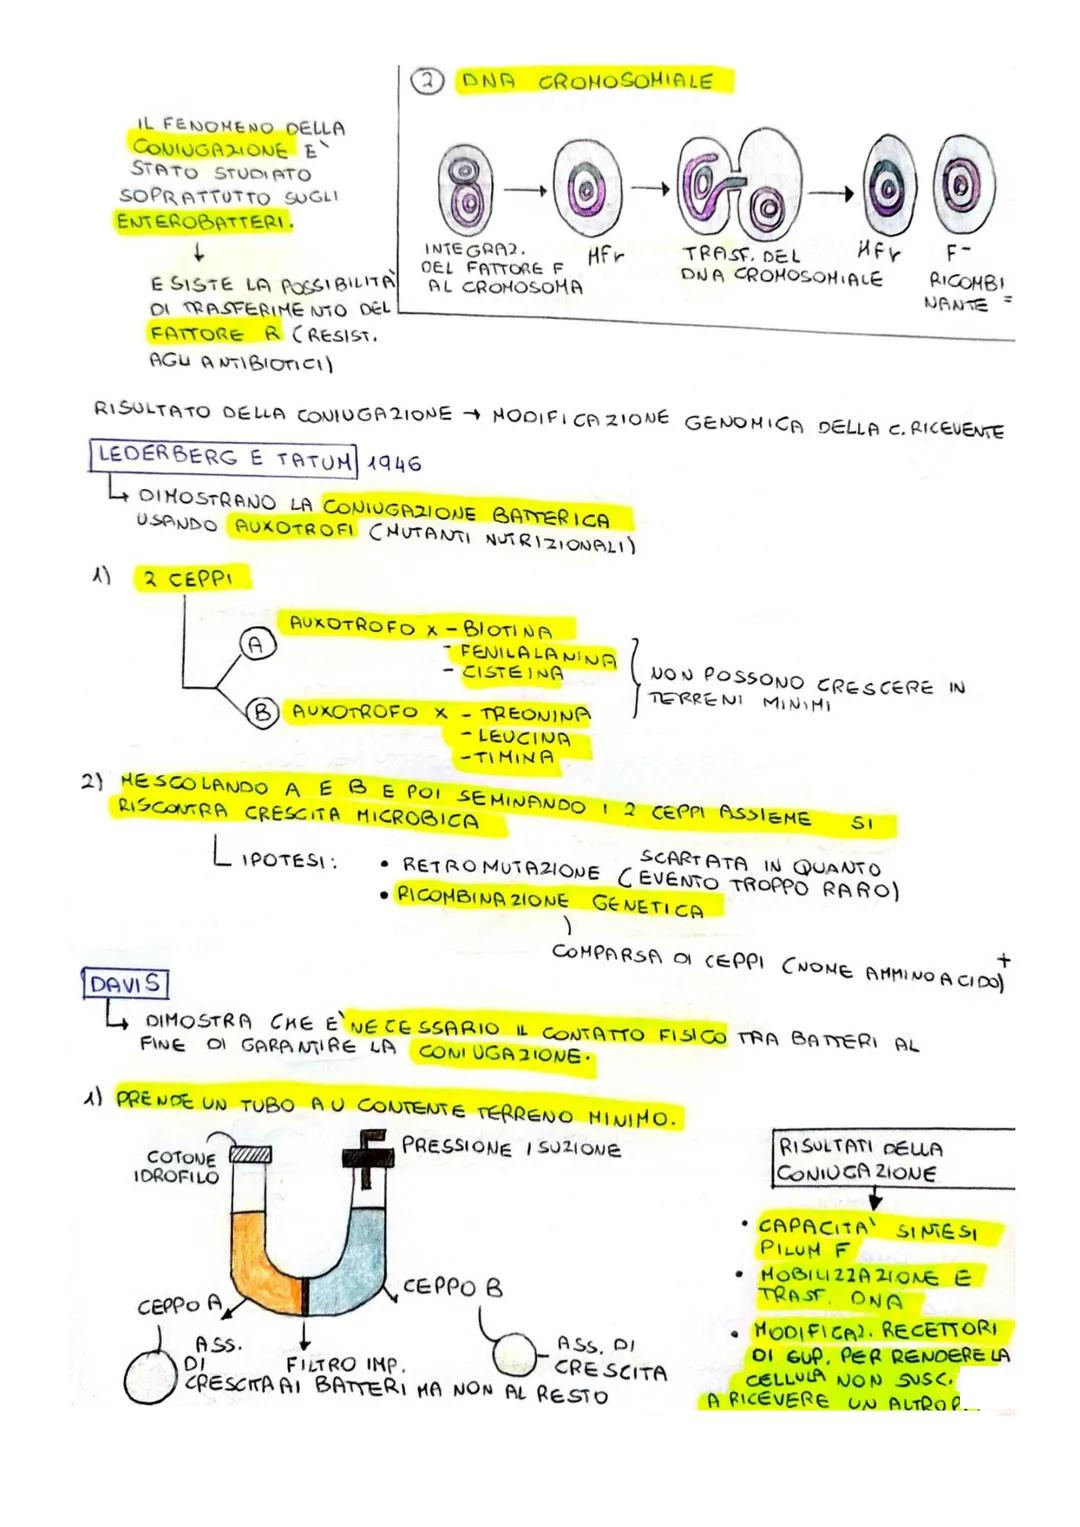 IL FENOMENO DELLA
CONIUGAZIONE E`
STATO STUDIATO
SOPRATTUTTO SUGLI
ENTEROBATTERI.
↓
ESISTE LA POSSIBILITÀ
DI TRASFERIMENTO DEL
FATTORE R (RESIST.
AGLI ANTIBIOTICI)
2 DNA CROMOSOMIALE
INTEGRAZ.
DEL FATTORE F
AL CROMOSOMA
Hfr
TRASF. DEL
DNA CROMOSOMIALE
Hfr
F-
RICOMBI
NANTE =
RISULTATO DELLA CONIUGAZIONE → MODIFICAZIONE GENOMICA DELLA C. RICEVENTE
LEDERBERG E TATUM 1946
DIMOSTRANO LA CONIUGAZIONE BATTERICA
USANDO AUXOTROFI (MUTANTI NUTRIZIONALI)
1) 2 CEPPI
A AUXOTROFO X - BIOTINA
- FENILALANINA
- CISTEINA
B AUXOTROFO X - TREONINA
- LEUCINA
- TIMINA
NON POSSONO CRESCERE IN
TERRENI MINIMI
2) MESCOLANDO A E B E POI SEMINANDO I 2 CEPPI ASSIEME SI
RISCONTRA CRESCITA MICROBICA
IPOTESI: • RETROMUTAZIONE (SCARTATA IN QUANTO
EVENTO TROPPO RARO)
• RICOMBINAZIONE GENETICA
COMPARSA DI CEPPI (NOME AMMINOACIDO)+
DAVIS
DIMOSTRA CHE E` NECESSARIO IL CONTATTO FISICO TRA BATTERI AL
FINE DI GARANTIRE LA CONIUGAZIONE.
1) PRENDE UN TUBO A U CONTENTE TERRENO MINIMO.
COTONE
IDROFILO
PRESSIONE / SUZIONE
CEPPO A
CEPPO B
ASS.
DI
CRESCITA
FILTRO IMP.
AI BATTERI MA NON AL RESTO
ASS. DI
CRESCITA
RISULTATI DELLA
CONIUGAZIONE
• CAPACITA` SINTESI
PILUM F
• MOBILIZZAZIONE E
TRASF. DNA
• MODIFICAZ. RECETTORI
DI SUP. PER RENDERE LA
CELLULA NON SUSC.
A RICEVERE UN ALTRO P.